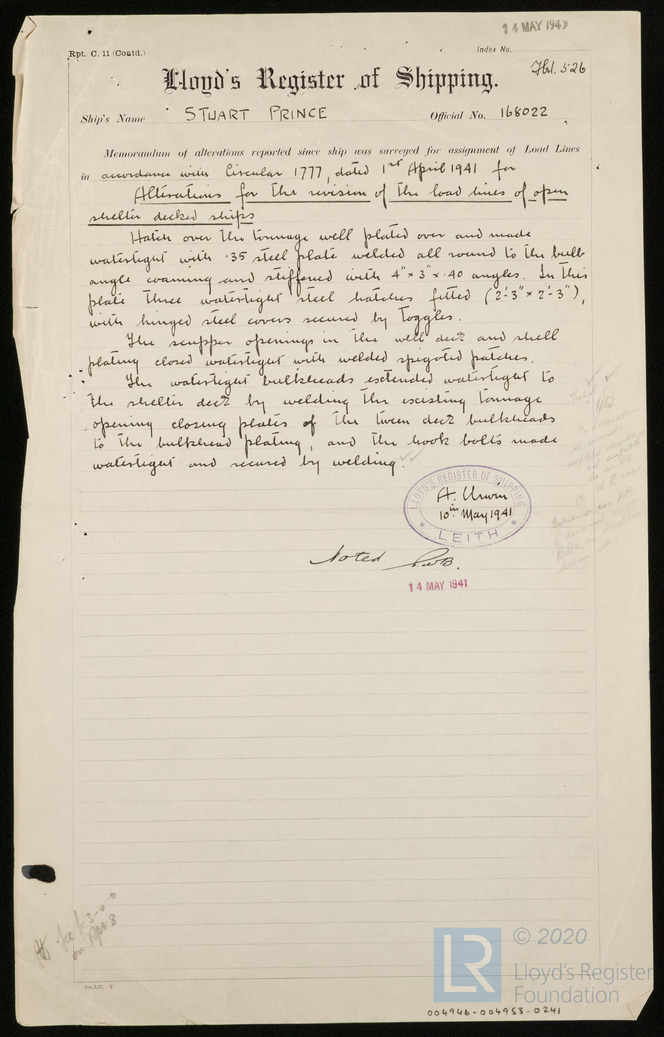 14 MAY 1941
Rpt. C. 11 (Contd.)
Index No.
Hbl. 526
Lloyd's Register of Shipping.
Ship's Name STUART PRINCE Official No. 168022
Memorandum of alterations reported since ship was surveyed for assignment of Load Lines
in accordance with Circular 1777, dated 1st April 1941 for
Alterations for the revision of the load lines of open
shelter decked ships
Hatch over the tonnage well plated over and made
watertight with .35 steel plate welded all round to the bulb
angle coaming and stiffened with 4" x 3" x .40 angles. In this
plate three watertight steel hatches fitted (2'-3" x 2'-3"),
with hinged steel covers secured by toggles.
The scupper openings in the well deck and shell
plating closed watertight with welded spigoted patches.
The watertight bulkheads extended watertight to
the shelter deck by welding the existing tonnage
opening closing plates of the tween deck bulkheads
to the bulkhead plating, and the hook bolts made
watertight and secured by welding.
LLOYD'S REGISTER OF SHIPPING
A. Urwin
10th May 1941
LEITH
Noted
14 MAY 1941
on Rpt 8
LR
© 2020
Lloyd's Register
Foundation
004946-004953-0241